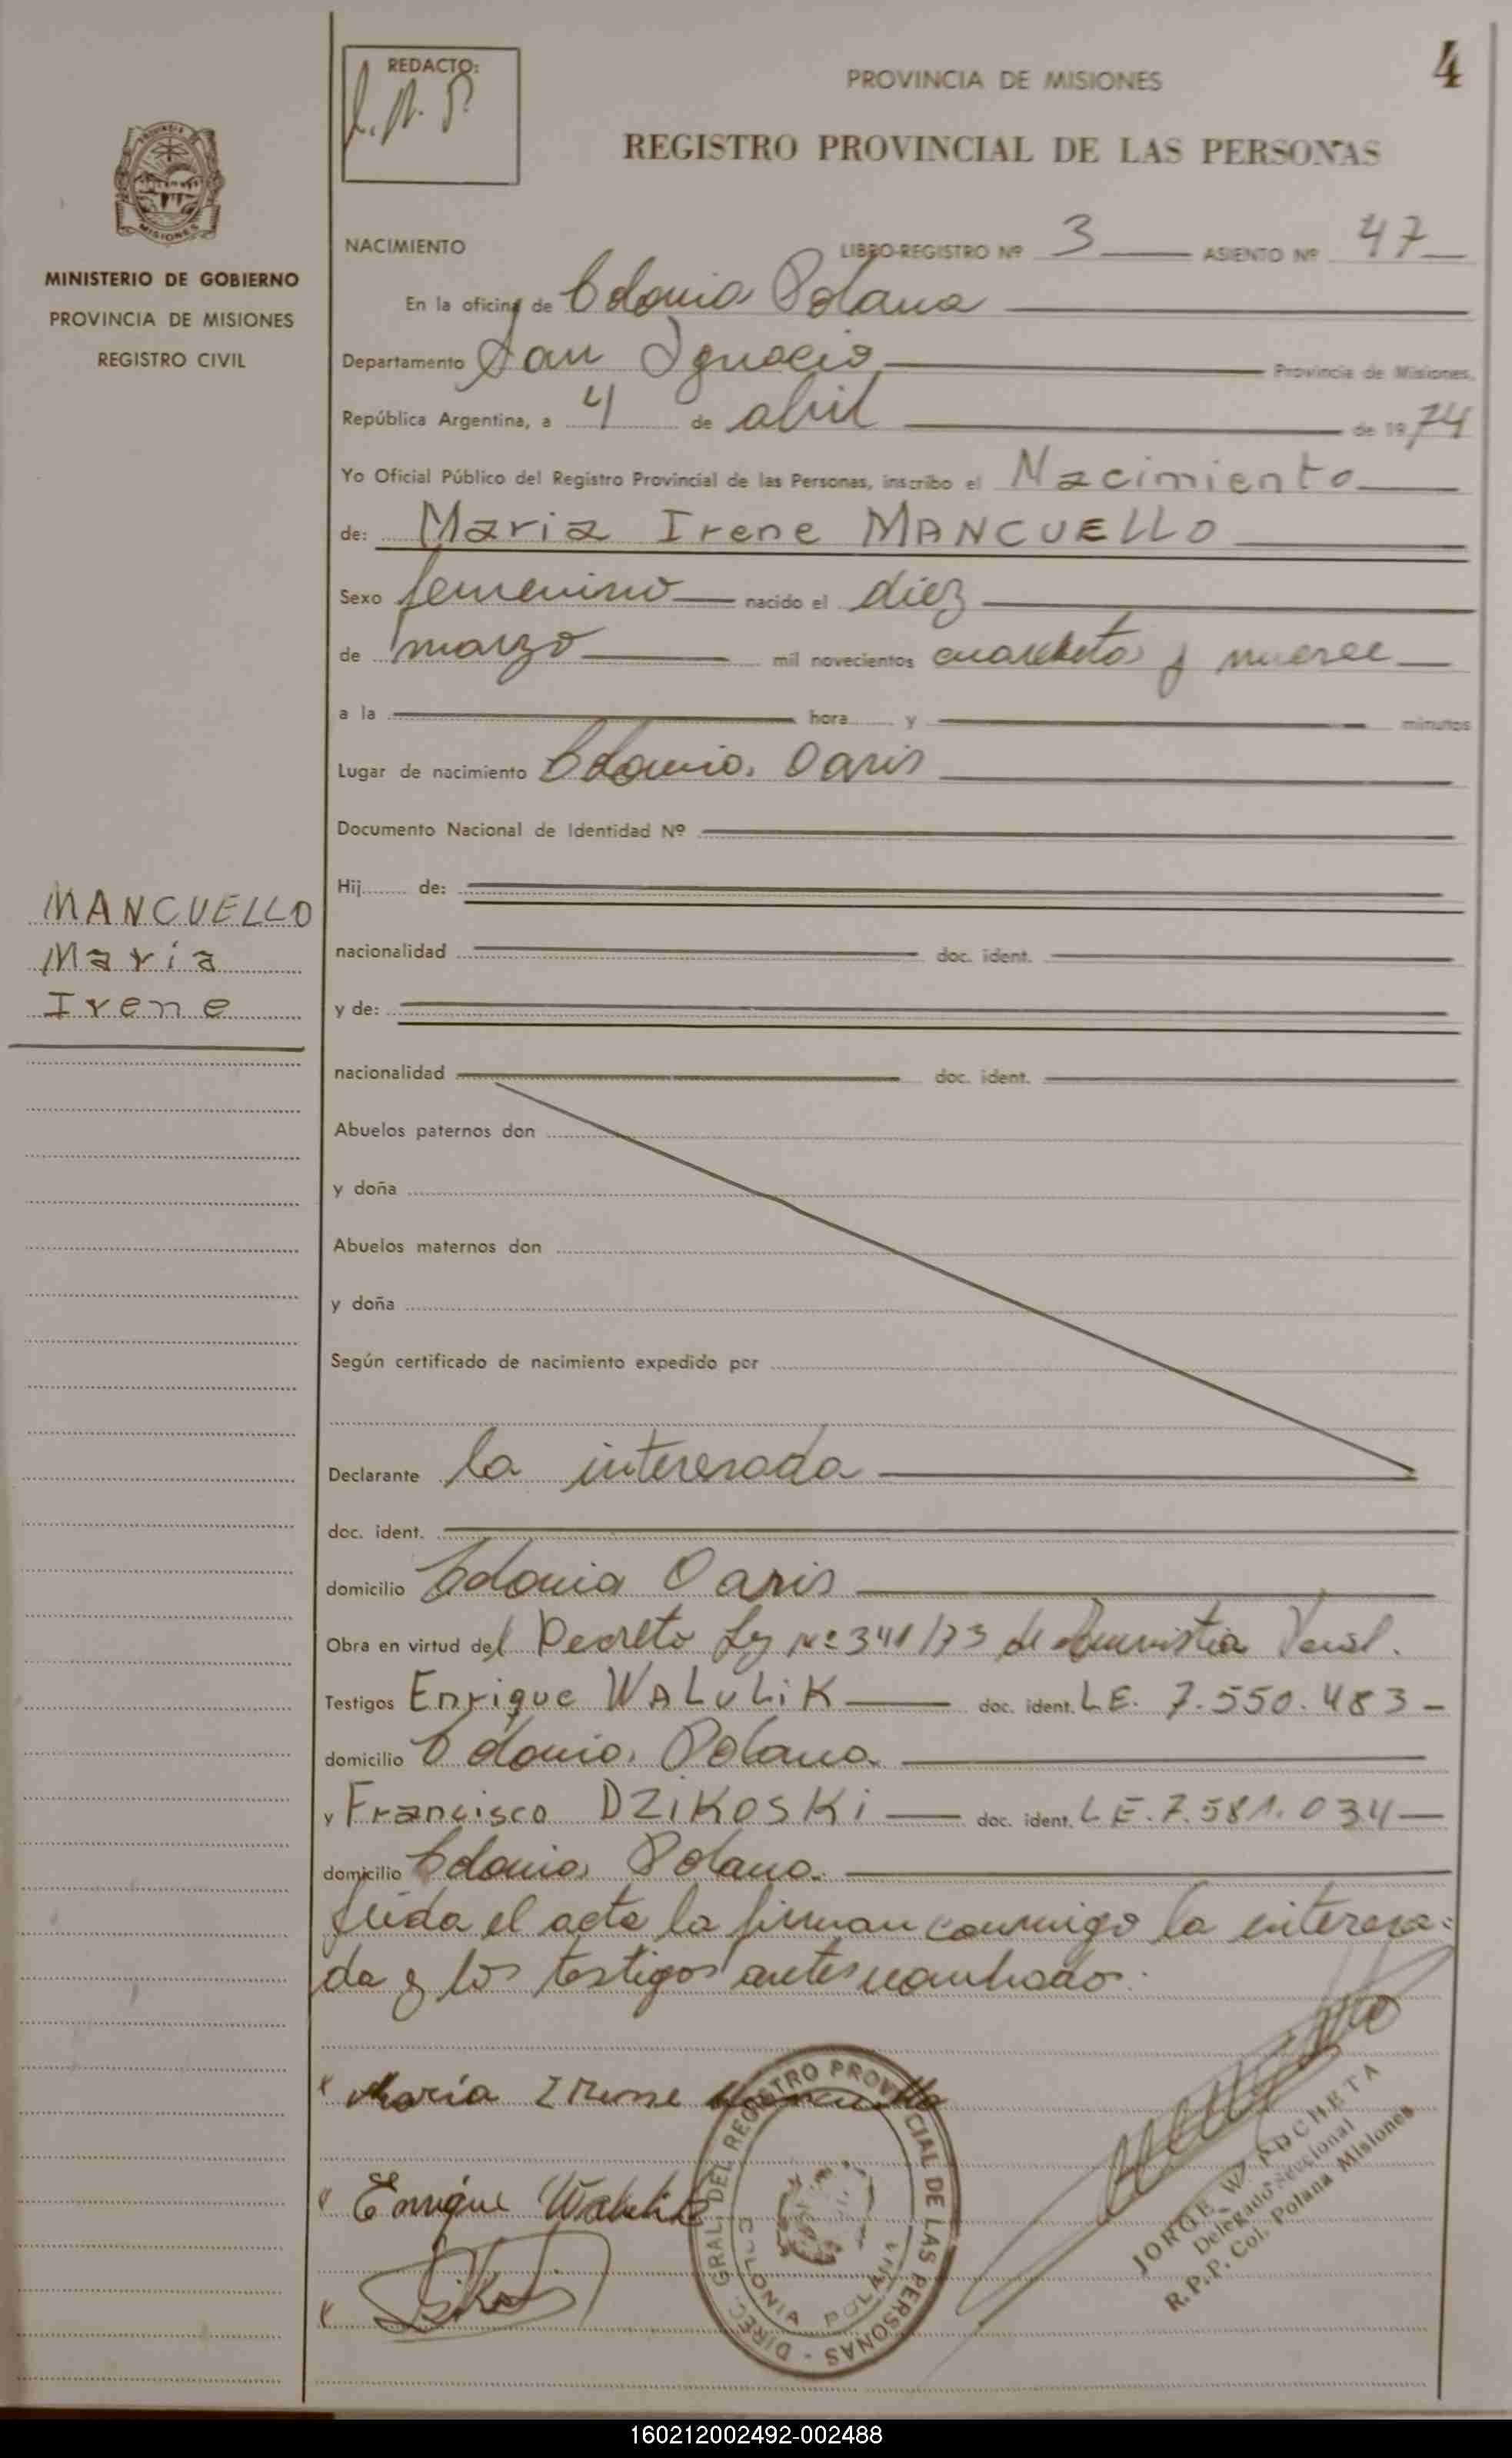 4
REDACTO:
PROVINCIA DE MISIONES
REGISTRO PROVINCIAL DE LAS PERSONAS
MISIONES
MINISTERIO DE GOBIERNO
PROVINCIA DE MISIONES
REGISTRO CIVIL
NACIMIENTO LIBRO-REGISTRO Nº 3 ASIENTO Nº 47
En la oficina de Colonia Polana
Departamento San Ignacio Provincia de Misiones.
República Argentina, a 4 de abril de 1974
Yo Oficial Público del Registro Provincial de las Personas, inscribo el Nacimiento
de: Maria Irene MANCUELLO
Sexo femenino nacido el diez
de marzo mil novecientos cuarenta y nueve
a la hora y minutos
Lugar de nacimiento Colonia Oasis
Documento Nacional de Identidad Nº
Hij de:
MANCUELLO
María
Irene
nacionalidad doc. ident.
y de:
nacionalidad doc. ident.
Abuelos paternos don
y doña
Abuelos maternos don
y doña
Según certificado de nacimiento expedido por
Declarante la interesada
doc. ident.
domicilio Colonia Oasis
Obra en virtud del Decreto Ley Nº 341/73 de
Testigos Enrique WALULIK doc. ident. LE. 7.550.483-
domicilio Colonia Polana
y Francisco DZIKOSKI doc. ident. LE. 7.581.034
domicilio Colonia Polana
leída el acta la firman conmigo la interesa-
da y los testigos
María Irene Mancuello
Enrique Walulik
DIREC. GRAL. DEL REGISTRO PROVINCIAL DE LAS PERSONAS
COLONIA POLANA
JORGE W. ARCHETA
Delegado Seccional
R.P.P. Col. Polana Misiones
160212002492-002488